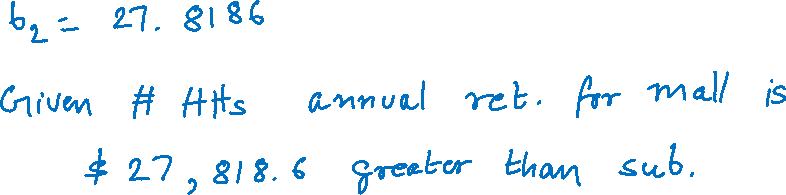 b₂ = 27.8186
Given # HHs annual ret. for mall is
$ 27,818.6 greater than sub.